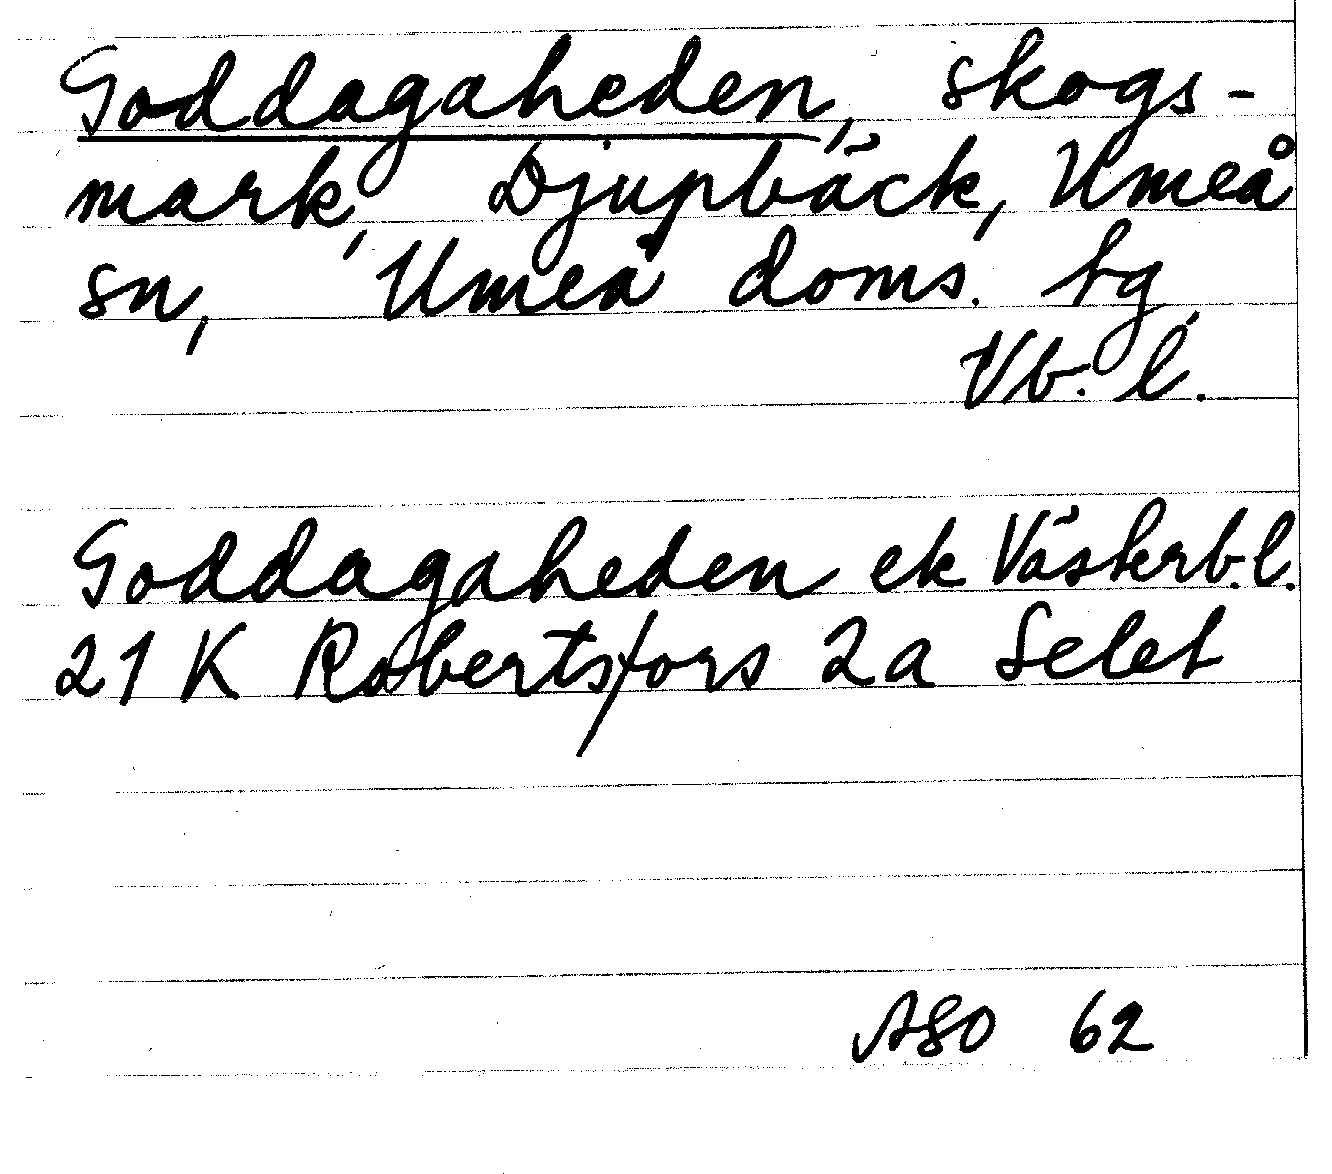 Goddagaheden, skogs-
mark, Djupbäck, Umeå
sn, Umeå doms. tg,
Vb. l.
Goddagaheden ek Västerb.l.
21 K Robertsfors 2a Selet
ASO 62